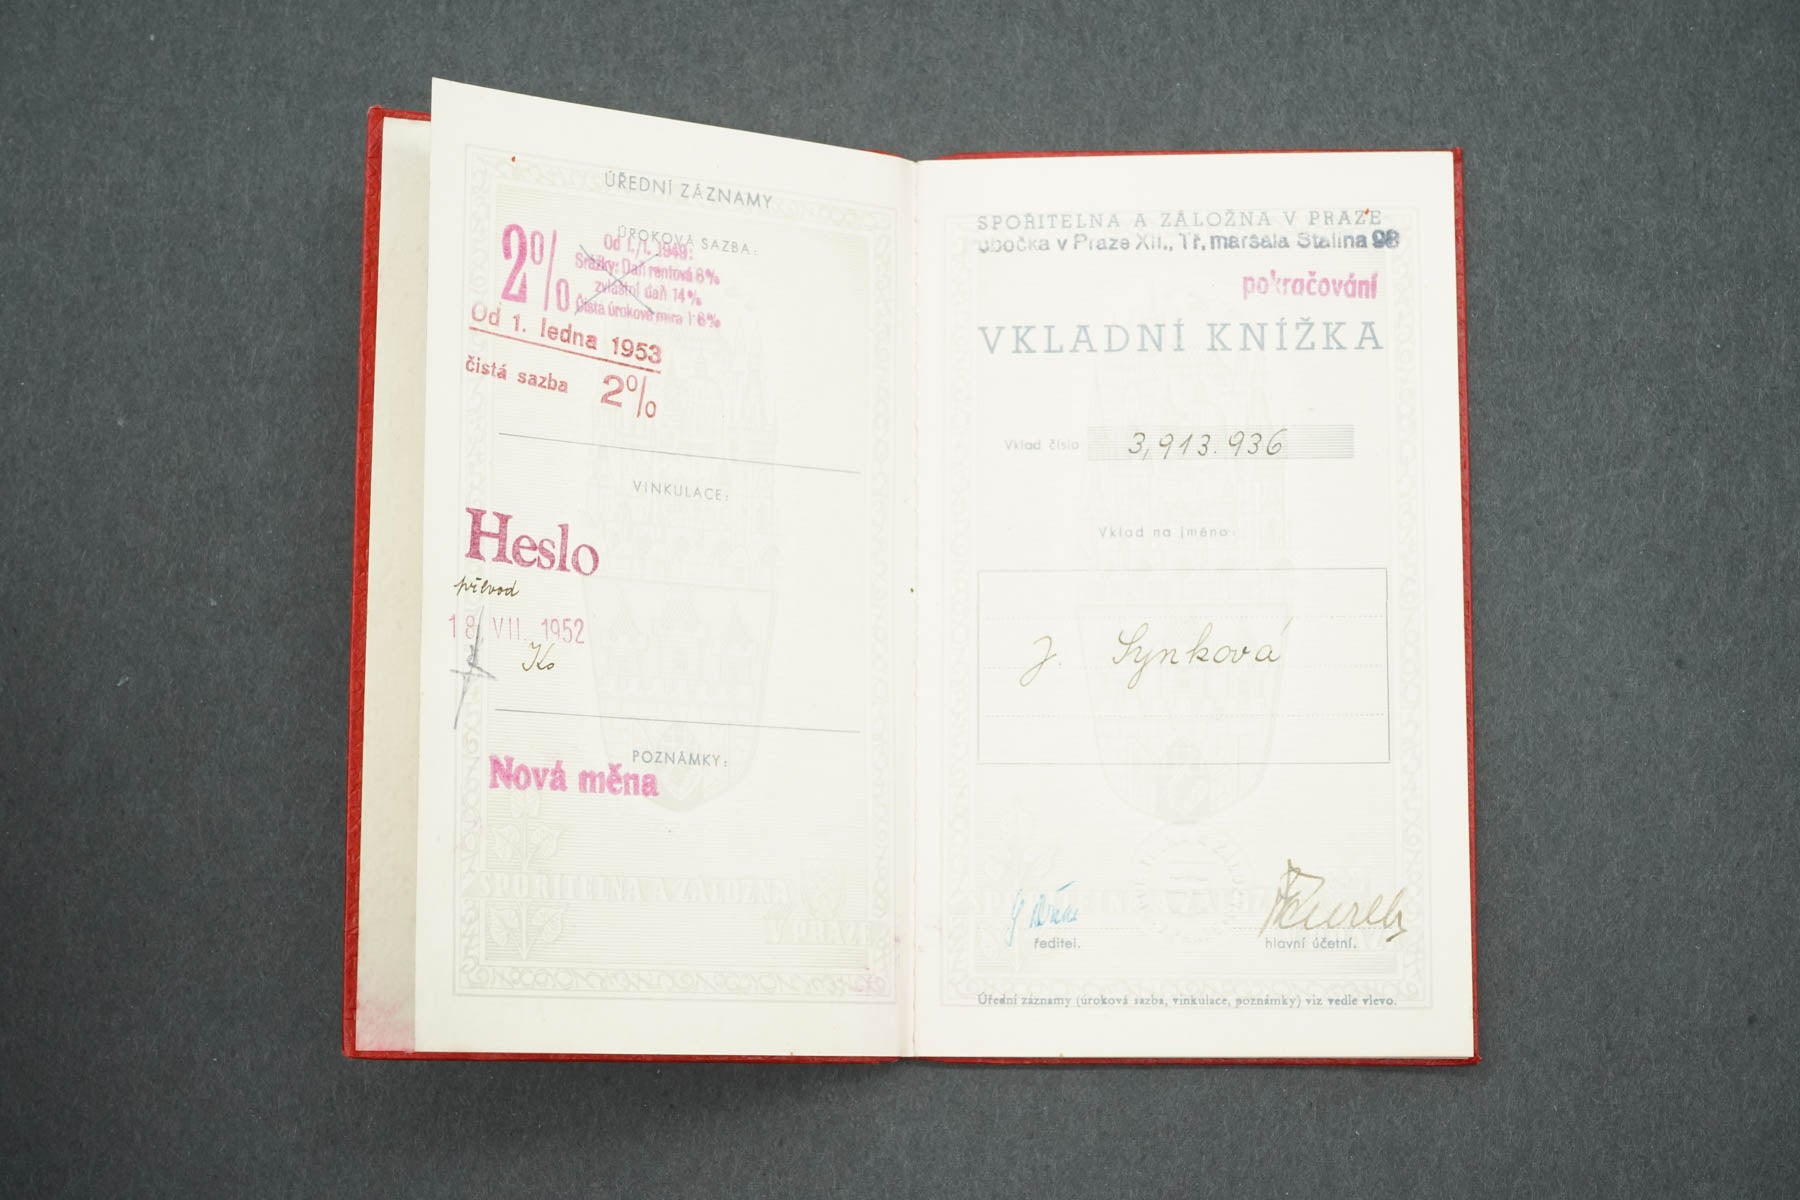 ÚŘEDNÍ ZÁZNAMY
ÚROKOVÁ SAZBA:
2%
Od 1./I. 1949:
Srážky: Daň rentová 8%
zvláštní daň 14%
Čistá úroková míra 1·6%
Od 1. ledna 1953
čistá sazba 2%
VINKULACE:
Heslo
převod
18. VII. 1952
Ko
POZNÁMKY:
Nová měna
SPOŘITELNA A ZÁLOŽNA
V PRAZE
SPOŘITELNA A ZÁLOŽNA V PRAZE
pobočka v Praze XII., Tř. maršala Stalina 98
pokračování
VKLADNÍ KNÍŽKA
Vklad číslo 3,913.936
Vklad na jméno:
J. Synková
ředitel.
hlavní účetní.
Úřední záznamy (úroková sazba, vinkulace, poznámky) viz vedle vlevo.